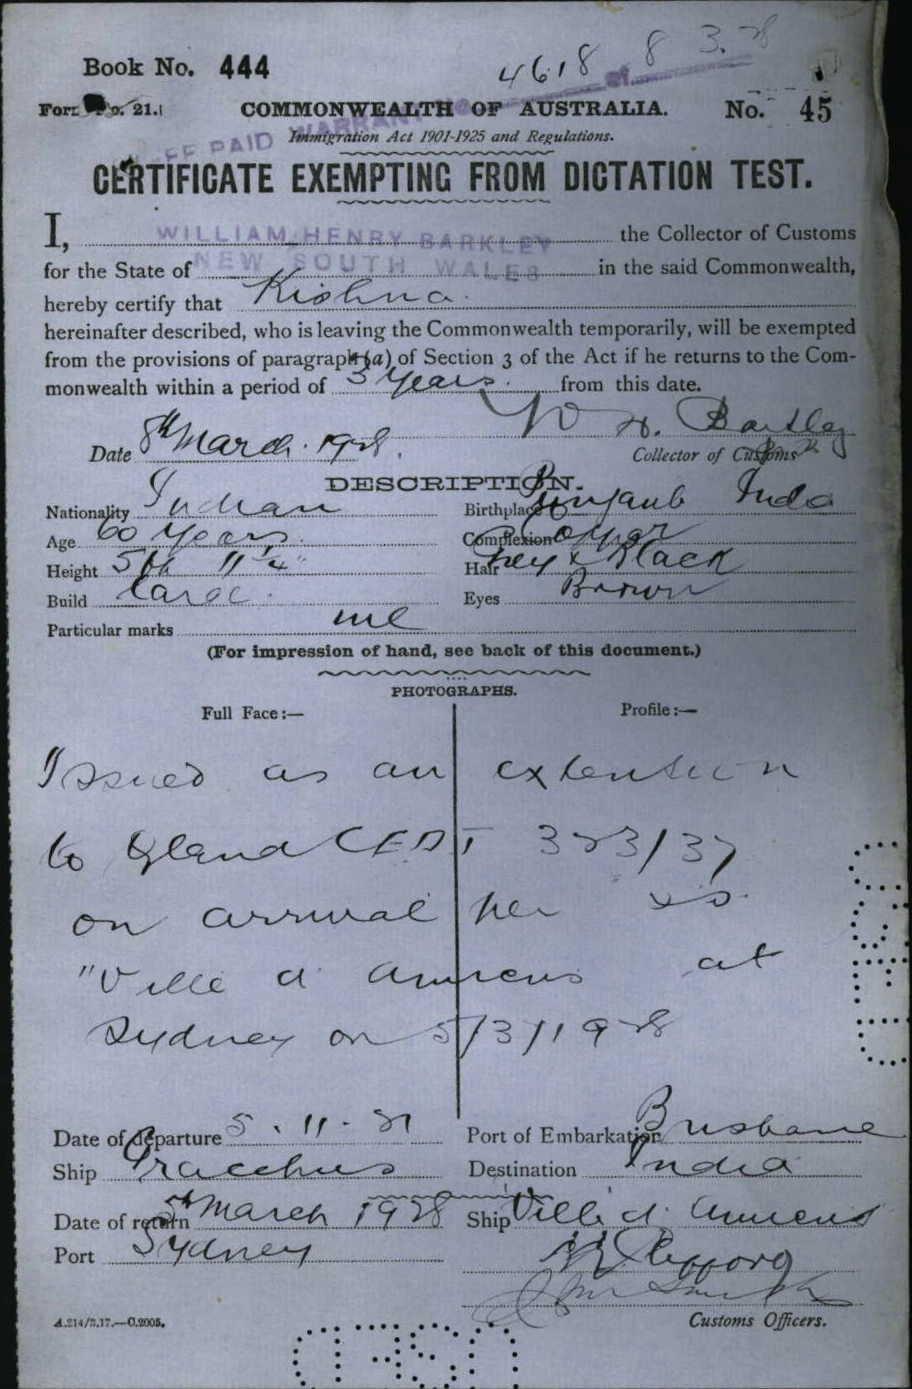 4618 8 3.28
Book No. 444
Form No. 21.
COMMONWEALTH OF AUSTRALIA. No. 45
FF PAID WARRANT No. of
Immigration Act 1901-1925 and Regulations.
CERTIFICATE EXEMPTING FROM DICTATION TEST.
I, WILLIAM HENRY BARKLEY the Collector of Customs
for the State of NEW SOUTH WALES in the said Commonwealth,
hereby certify that Kishna
hereinafter described, who is leaving the Commonwealth temporarily, will be exempted
from the provisions of paragraph (a) of Section 3 of the Act if he returns to the Com-
monwealth within a period of 3 Years. from this date.
W H. Barkley
Date 8th March. 1928. Collector of Customs
DESCRIPTION.
Nationality Indian Birthplace Punjaub India
Age 60 Years Complexion Copper
Height 5ft 11¼" Hair Grey & Black
Build Large. Eyes Brown
Particular marks nil
(For impression of hand, see back of this document.)
PHOTOGRAPHS.
Full Face:— Profile:—
Issued as an extension
to CEDT 323/37
on arrival per ss
"Ville d Amiens at
Sydney on 5/3/1928
Date of departure 5.11.21 Port of Embarkation Brisbane
Ship Gracchus Destination India
Date of return 5th March 1928 Ship Ville d. Amiens
Port Sydney
A.214/3.17.—C.2005. Customs Officers.